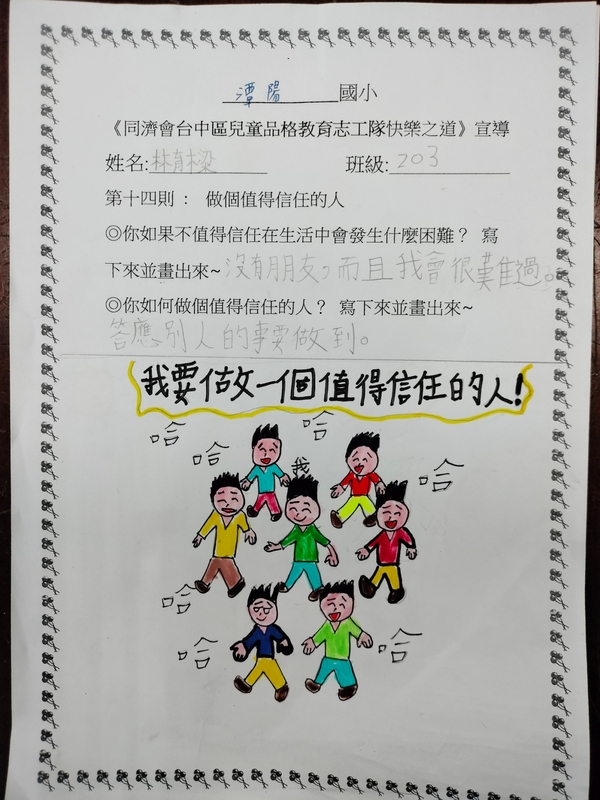 潭陽 國小
《同濟會台中區兒童品格教育志工隊快樂之道》宣導
姓名:林育樑 班級:203
第十四則： 做個值得信任的人
◎你如果不值得信任在生活中會發生什麼困難？ 寫
下來並畫出來~沒有朋友，而且我會很難過。
◎你如何做個值得信任的人？ 寫下來並畫出來~
答應別人的事要做到。
我要做一個值得信任的人!
哈
哈
哈
我
哈
哈
哈
哈